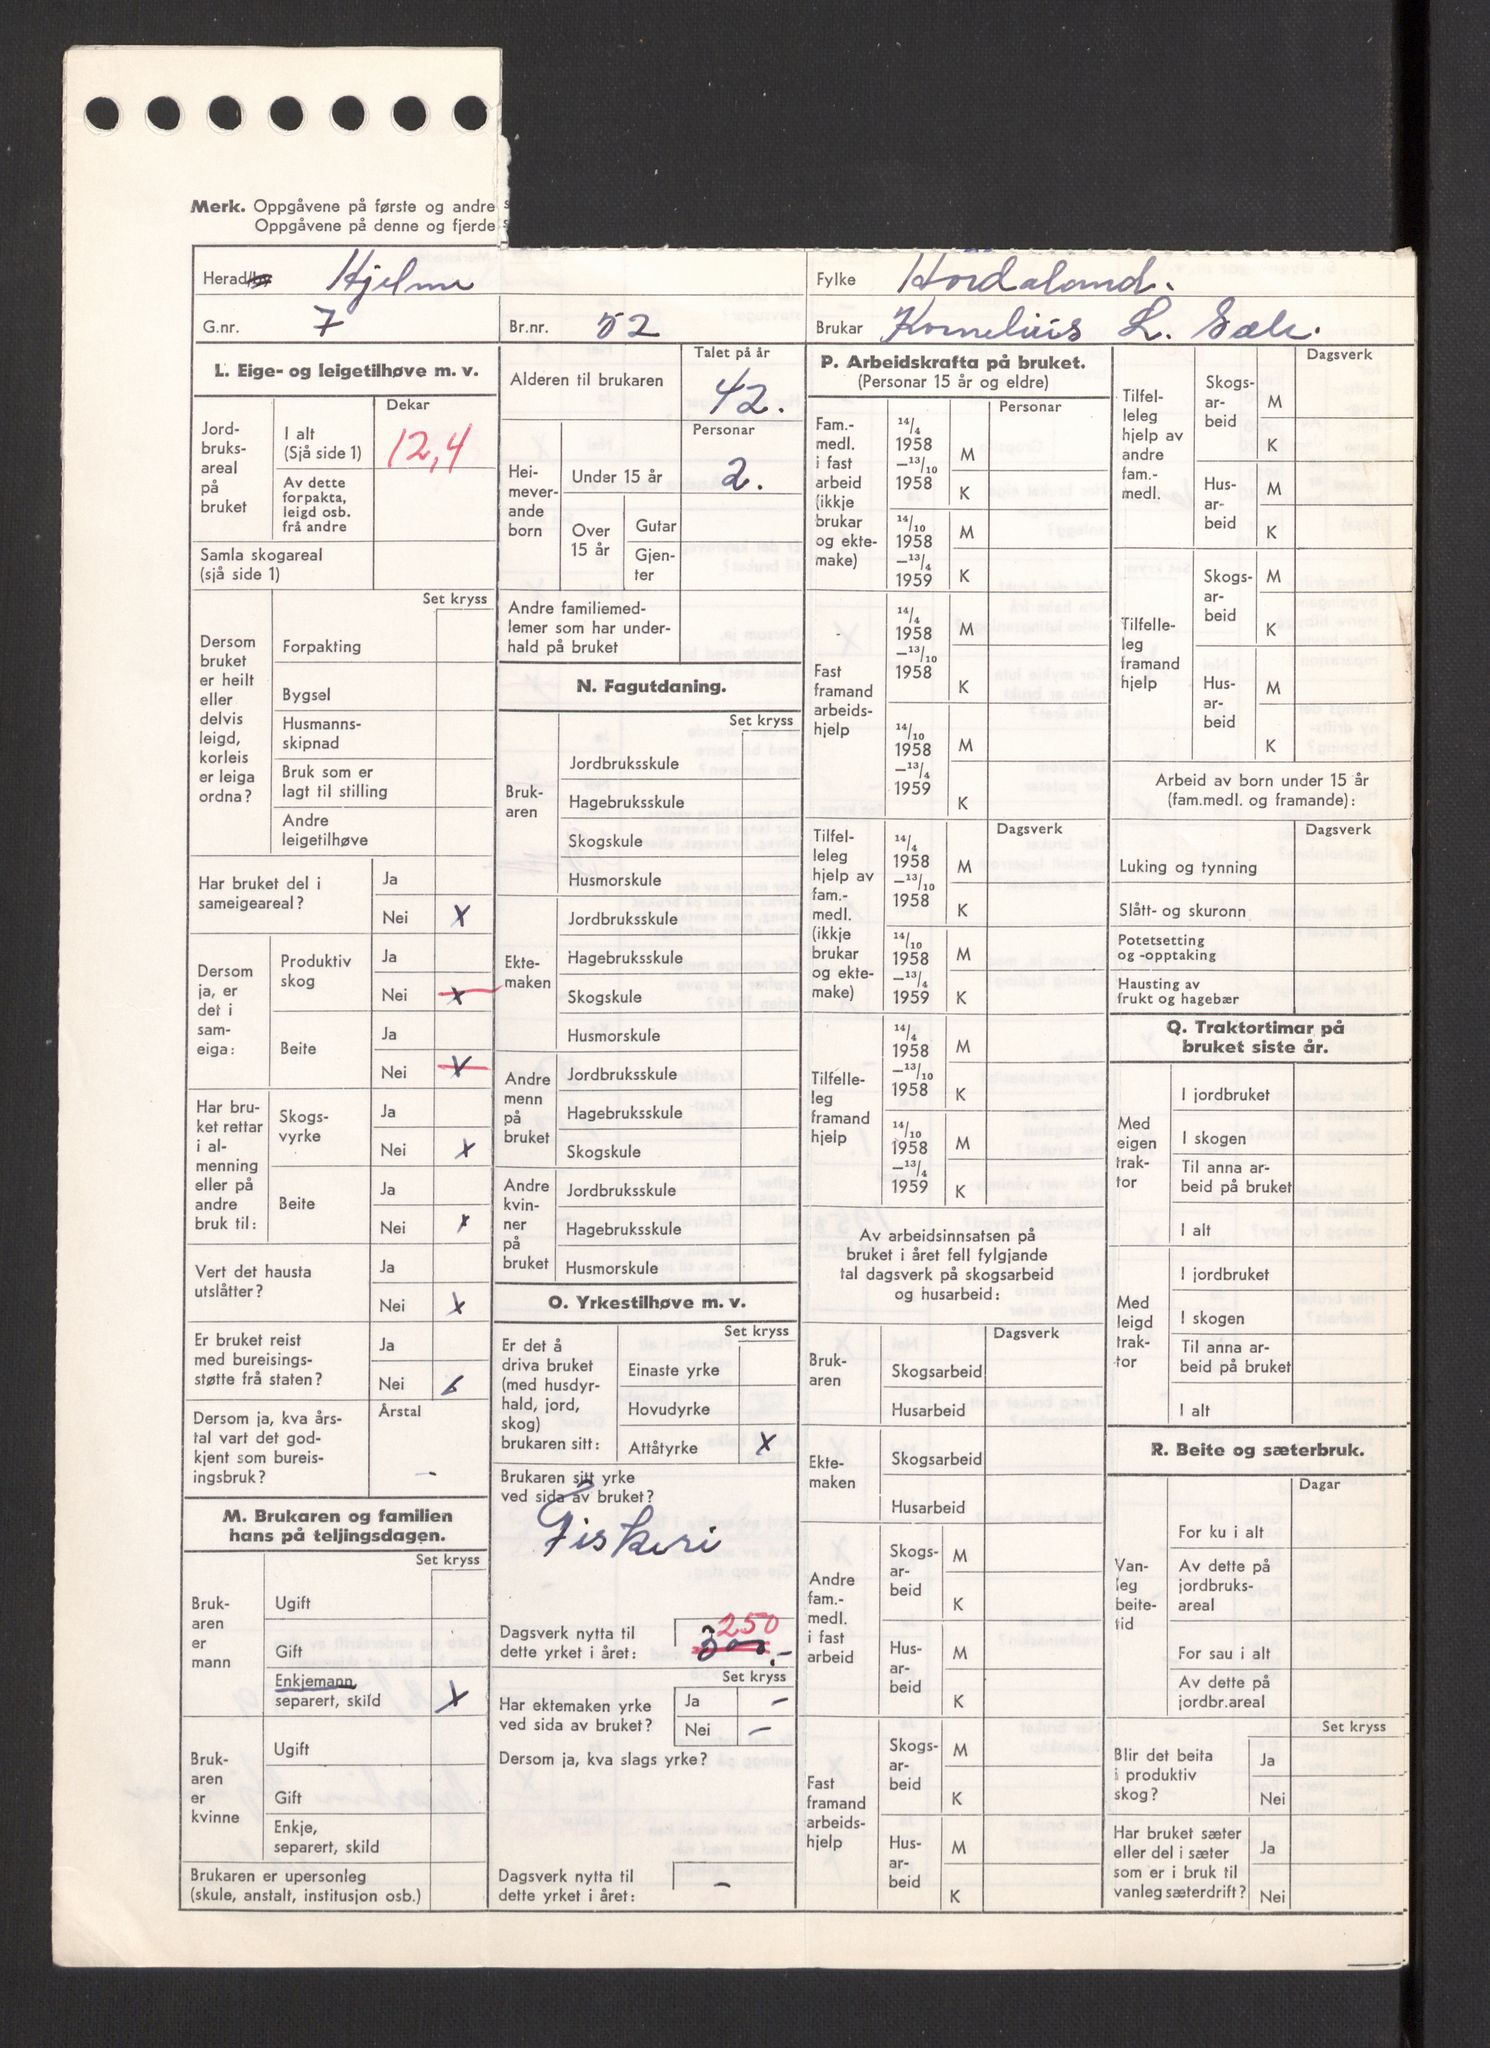 Merk. Oppgåvene på første og andre s
Oppgåvene på denne og fjerde s
Herad/by Hjelme
Fylke Hordaland.
G.nr. 7 Br.nr. 52
Brukar Kornelius L. Sæle.
L. Eige- og leigetilhøve m. v.
Dekar
Jord-
bruks-
areal
på
bruket
I alt
(Sjå side 1)
12,4
Av dette
forpakta,
leigd osb.
frå andre
Samla skogareal
(sjå side 1)
Set kryss
Dersom
bruket
er heilt
eller
delvis
leigd,
korleis
er leiga
ordna?
Forpakting
Bygsel
Husmanns-
skipnad
Bruk som er
lagt til stilling
Andre
leigetilhøve
Har bruket del i
sameigeareal?
Ja
Nei X
Dersom
ja, er
det i
sam-
eiga:
Produktiv
skog
Ja
Nei X
Beite
Ja
Nei X
Har bru-
ket rettar
i al-
menning
eller på
andre
bruk til:
Skogs-
vyrke
Ja
Nei X
Beite
Ja
Nei X
Vert det hausta
utslåtter?
Ja
Nei X
Er bruket reist
med bureisings-
støtte frå staten?
Ja
Nei X
Dersom ja, kva års-
tal vart det god-
kjent som bureis-
ingsbruk?
Årstal
–
M. Brukaren og familien
hans på teljingsdagen.
Set kryss
Bruk-
aren
er
mann
Ugift
Gift
Enkjemann,
separert, skild X
Bruk-
aren
er
kvinne
Ugift
Gift
Enkje,
separert, skild
Brukaren er upersonleg
(skule, anstalt, institusjon osb.)
Talet på år
Alderen til brukaren 42.
Personar
Hei-
mever-
ande
born
Under 15 år 2.
Over
15 år
Gutar
Gjen-
ter
Andre familiemed-
lemer som har under-
hald på bruket
N. Fagutdaning.
Set kryss
Bruk-
aren
Jordbruksskule
Hagebruksskule
Skogskule
Husmorskule
Ekte-
maken
Jordbruksskule
Hagebruksskule
Skogskule
Husmorskule
Andre
menn
på
bruket
Jordbruksskule
Hagebruksskule
Skogskule
Andre
kvin-
ner
på
bruket
Jordbruksskule
Hagebruksskule
Husmorskule
O. Yrkestilhøve m. v.
Set kryss
Er det å
driva bruket
(med husdyr-
hald, jord,
skog)
brukaren sitt:
Einaste yrke
Hovudyrke
Attåtyrke X
Brukaren sitt yrke
ved sida av bruket?
Fiskeri
Dagsverk nytta til
dette yrket i året:
250
300.-
Set kryss
Har ektemaken yrke
ved sida av bruket?
Ja –
Nei –
Dersom ja, kva slags yrke?
Dagsverk nytta til
dette yrket i året: –
P. Arbeidskrafta på bruket.
(Personar 15 år og eldre)
Personar
Fam.-
medl.
i fast
arbeid
(ikkje
brukar
og ekte-
make)
14/4
1958
–13/10
1958
M
K
14/10
1958
–13/4
1959
M
K
Fast
framand
arbeids-
hjelp
14/4
1958
–13/10
1958
M
K
14/10
1958
–13/4
1959
M
K
Dagsverk
Tilfel-
leleg
hjelp av
fam.-
medl.
(ikkje
brukar
og ekte-
make)
14/4
1958
–13/10
1958
M
K
14/10
1958
–13/4
1959
M
K
Tilfelle-
leg
framand
hjelp
14/4
1958
–13/10
1958
M
K
14/10
1958
–13/4
1959
M
K
Av arbeidsinnsatsen på
bruket i året fell fylgjande
tal dagsverk på skogsarbeid
og husarbeid:
Dagsverk
Bruk-
aren
Skogsarbeid
Husarbeid
Ekte-
maken
Skogsarbeid
Husarbeid
Andre
fam.-
medl.
i fast
arbeid
Skogs-
ar-
beid
M
K
Hus-
ar-
beid
M
K
Fast
framand
arbeids-
hjelp
Skogs-
ar-
beid
M
K
Hus-
ar-
beid
M
K
Dagsverk
Tilfel-
leleg
hjelp av
andre
fam.-
medl.
Skogs-
ar-
beid
M
K
Hus-
ar-
beid
M
K
Tilfelle-
leg
framand
hjelp
Skogs-
ar-
beid
M
K
Hus-
ar-
beid
M
K
Arbeid av born under 15 år
(fam.medl. og framande):
Dagsverk
Luking og tynning
Slått- og skuronn
Potetsetting
og -opptaking
Hausting av
frukt og hagebær
Q. Traktortimar på
bruket siste år.
Med
eigen
trak-
tor
I jordbruket
I skogen
Til anna ar-
beid på bruket
I alt
Med
leigd
trak-
tor
I jordbruket
I skogen
Til anna ar-
beid på bruket
I alt
R. Beite og sæterbruk.
Dagar
Van-
leg
beite-
tid
For ku i alt
Av dette på
jordbruks-
areal
For sau i alt
Av dette på
jordbr.areal
Set kryss
Blir det beita
i produktiv
skog?
Ja
Nei
Har bruket sæter
eller del i sæter
som er i bruk til
vanleg sæterdrift?
Ja
Nei